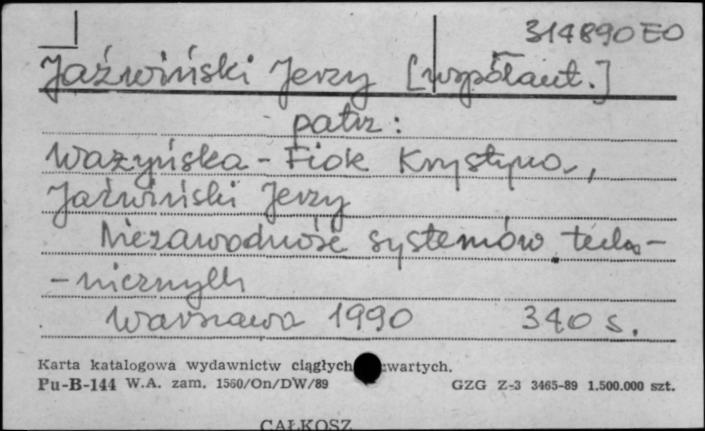 314890 EO
Jaźwiński Jerzy [współaut.]
patrz:
Ważyńska-Fiok Krystyna,
Jaźwiński Jerzy
Niezawodność systemów tech-
-nicznych
Warszawa 1990 340 s.
Karta katalogowa wydawnictw ciągłych wartych.
Pu-B-144 W.A. zam. 1560/On/DW/89 GZG Z-3 3465-89 1.500.000 szt.
CAŁKOSZ